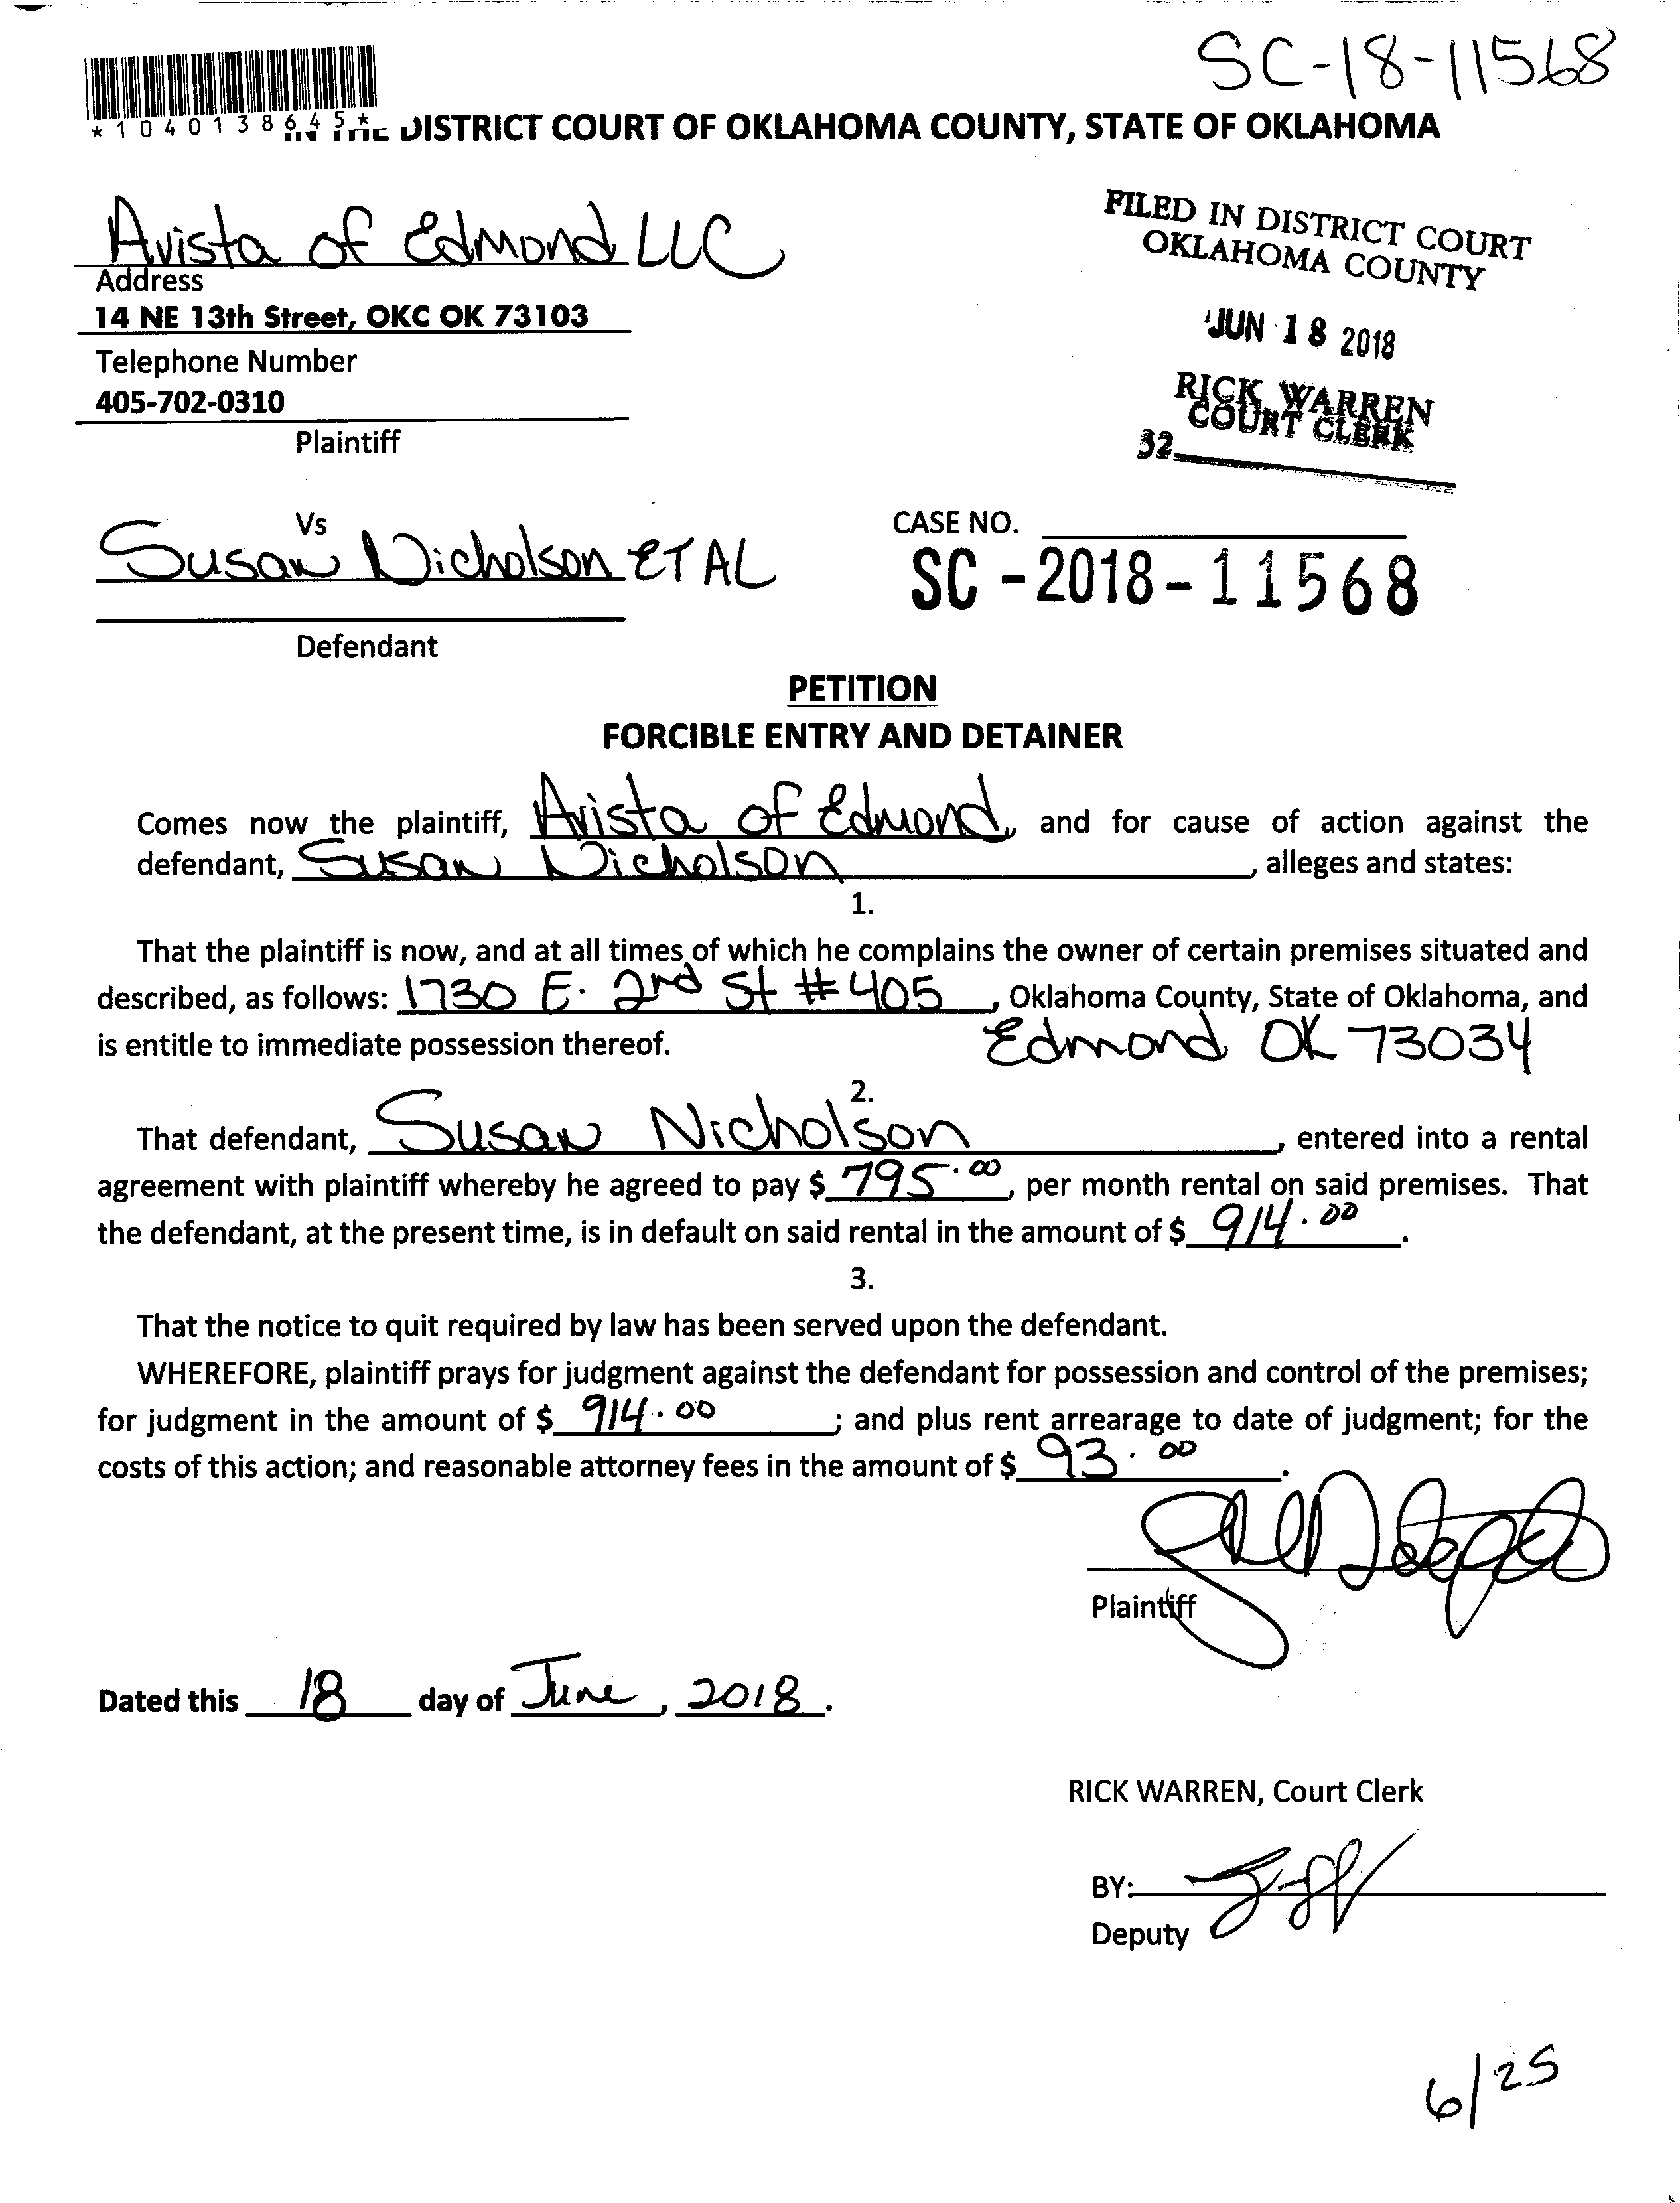 SC-18-11568
*1040138645*
IN THE DISTRICT COURT OF OKLAHOMA COUNTY, STATE OF OKLAHOMA
Avista of Edmond LLC
Address
14 NE 13th Street, OKC OK 73103
Telephone Number
405-702-0310
Plaintiff
FILED IN DISTRICT COURT
OKLAHOMA COUNTY
JUN 18 2018
RICK WARREN
COURT CLERK
32
Vs
Susan Nicholson ET AL
Defendant
CASE NO.
SC-2018-11568
PETITION
FORCIBLE ENTRY AND DETAINER
Comes now the plaintiff, Avista of Edmond, and for cause of action against the
defendant, Susan Nicholson, alleges and states:
1.
That the plaintiff is now, and at all times of which he complains the owner of certain premises situated and
described, as follows: 1730 E. 2nd St #405, Oklahoma County, State of Oklahoma, and
is entitle to immediate possession thereof. Edmond OK 73034
2.
That defendant, Susan Nicholson, entered into a rental
agreement with plaintiff whereby he agreed to pay $ 795.00, per month rental on said premises. That
the defendant, at the present time, is in default on said rental in the amount of $ 914.00.
3.
That the notice to quit required by law has been served upon the defendant.
WHEREFORE, plaintiff prays for judgment against the defendant for possession and control of the premises;
for judgment in the amount of $ 914.00; and plus rent arrearage to date of judgment; for the
costs of this action; and reasonable attorney fees in the amount of $ 93.00.
Plaintiff
Dated this 18 day of June, 2018.
RICK WARREN, Court Clerk
BY:
Deputy
6/25